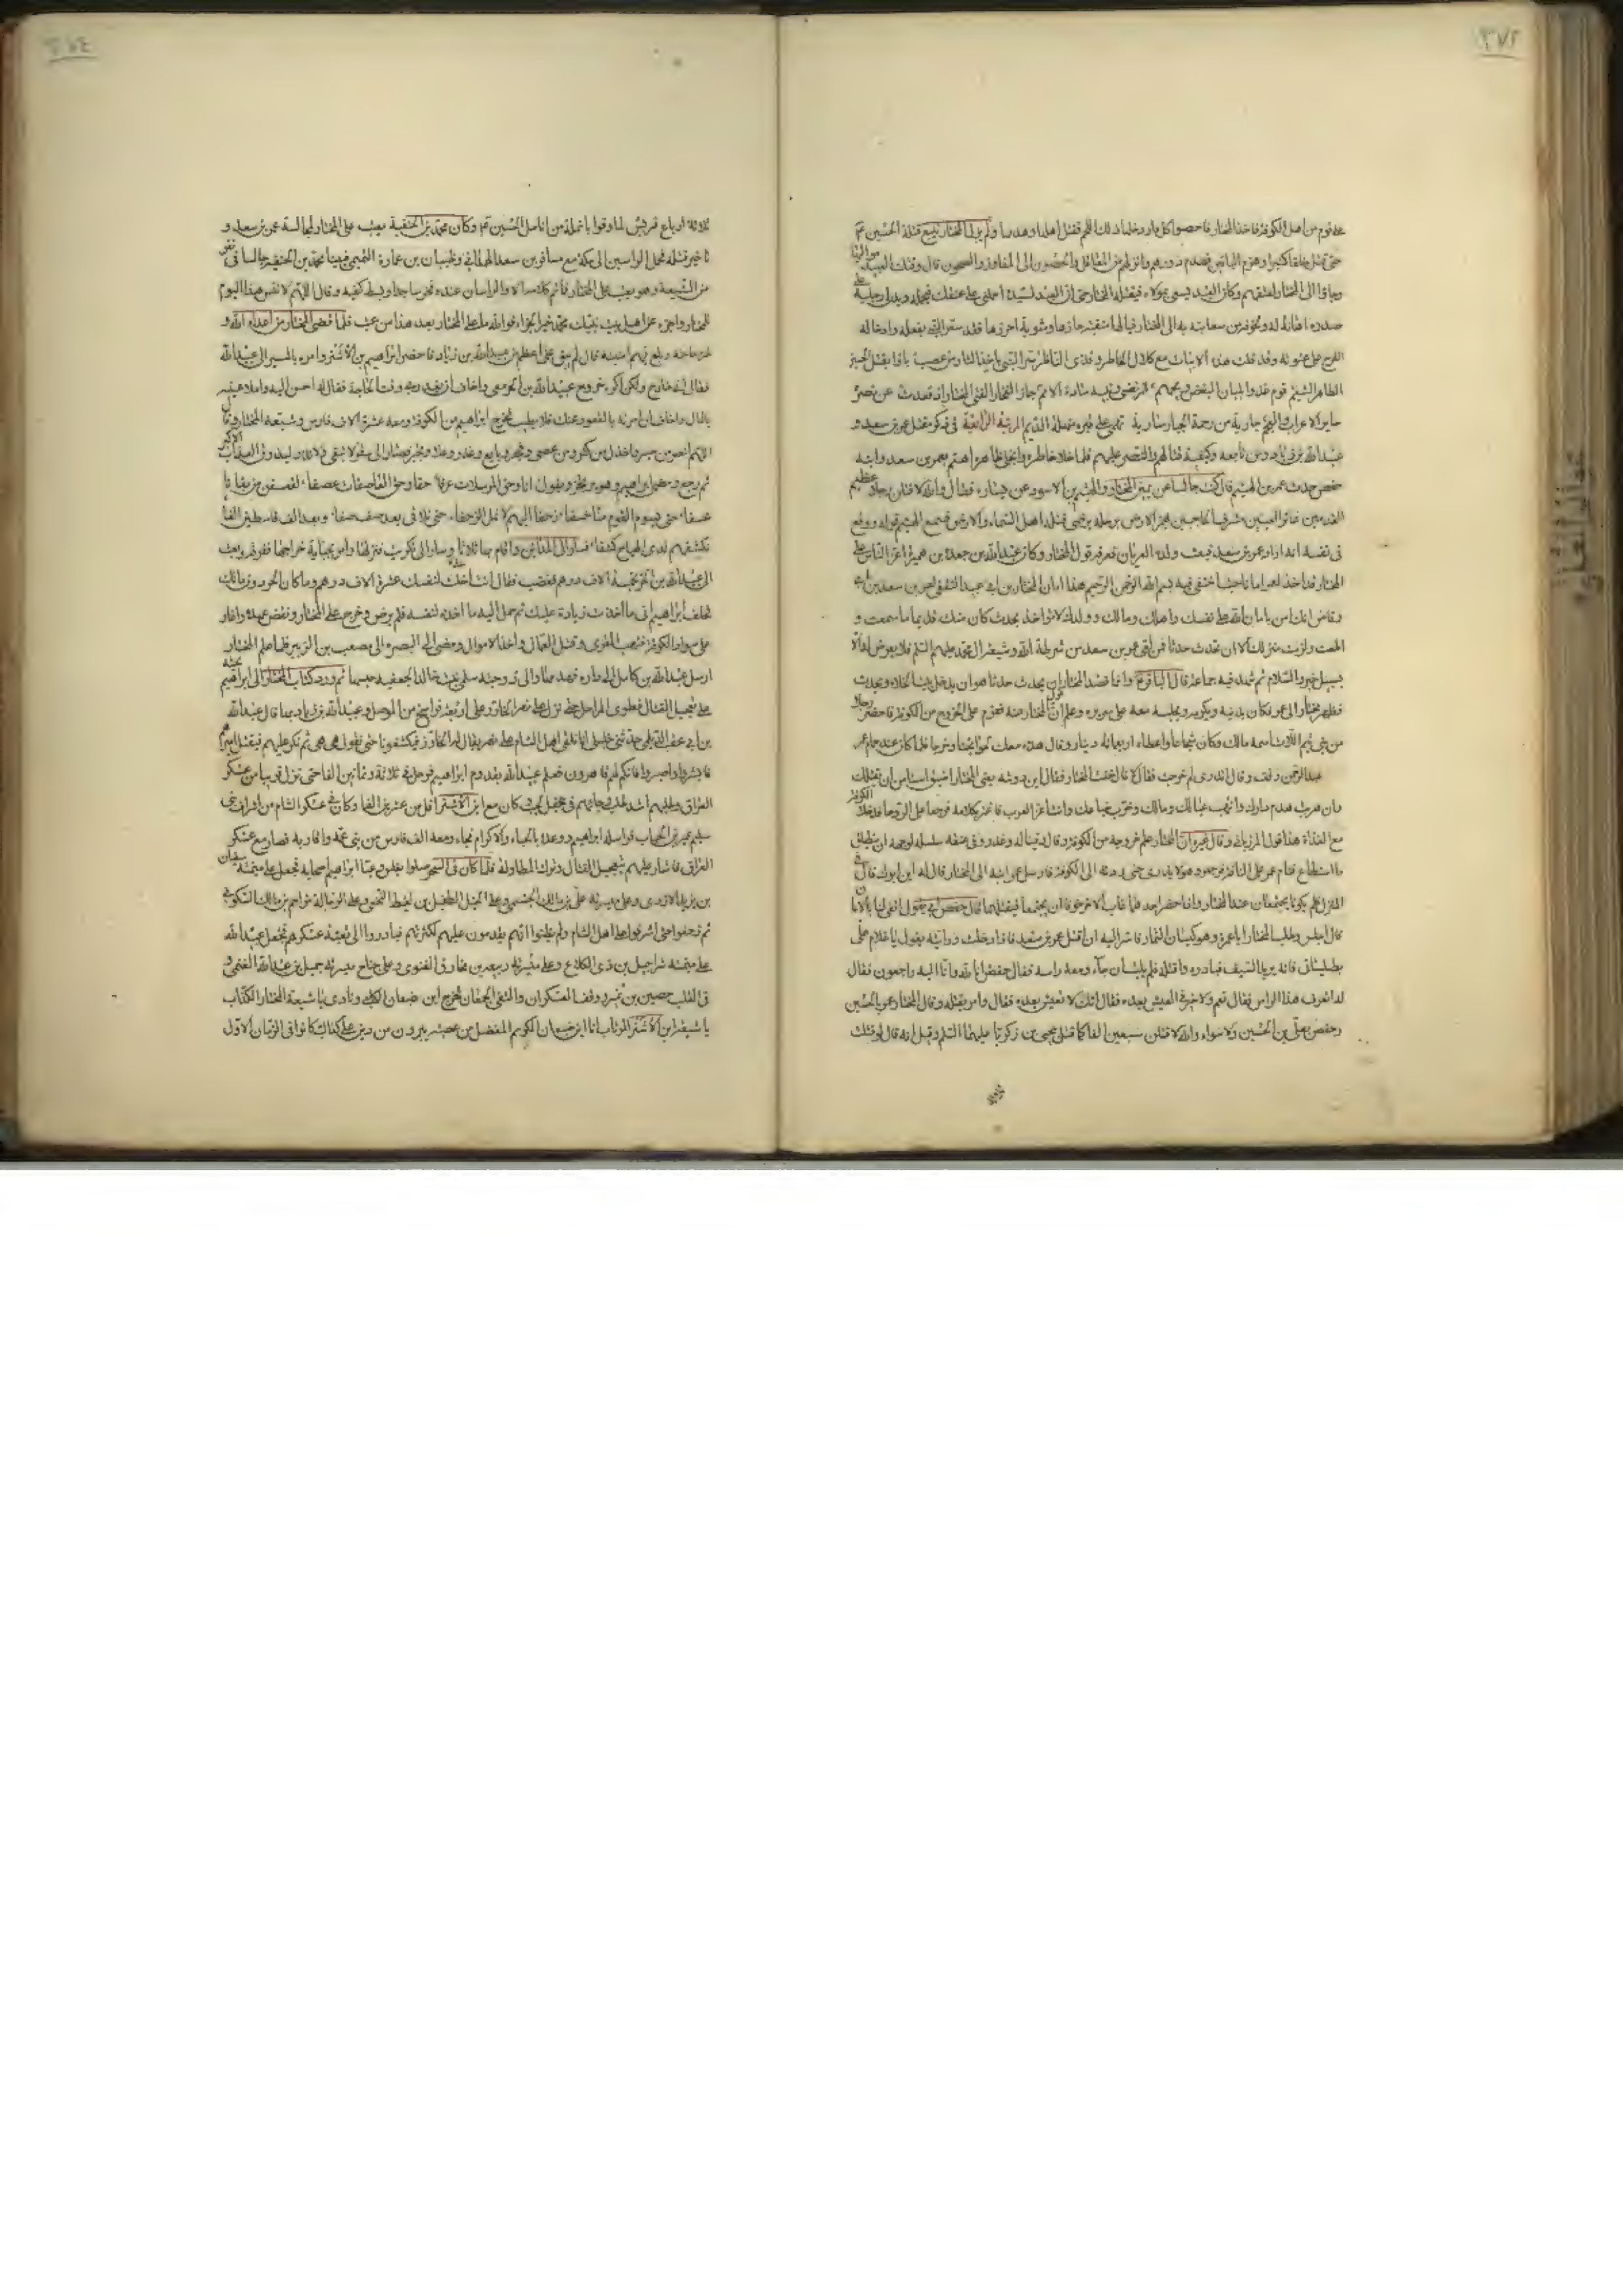 على قوم من اهل الكوفة فاخذ المختار فاحصوا كل دار دخلها ذلك اللحم فقتل اهلها وهدمها ولم يزل المختار يتبع قتلة الحسين ع
حتى قتل خلقا كثيرا وهزم الباقين فهدم دورهم وانزلهم من المعاقل والحصون الى المفاوز والصحون قال وقتلت العبيد مواليها
وجاؤا الى المختار فعتقهم وكان العبد يسعى بمولاه فيقتله المختار حتى ان العبد لسيده احملني على عنقك فيحمله ويدلي رجليه على
صدره اهانة له ولخوفه من سعايته به الى المختار فيالها منقبة حازها ومثوبة احرزها فقد سر النبي بفعله وادخاله
الفرح على عترته وقد قلت هذه الابيات مع كلال الخاطر وقذى الناظر سر النبي باخذ الثار من عصب باؤا بقتل الحسين
الطاهر الشيم قوم غذوا بلبان البغض ويحهم للمرتضى وبنيه سادة الامم حاز الفخار الفتى المختار اذ قعدت عن نصره
ساير الاعراب والعجم جادته من رحمة الجبار سارية تهمي على قبره منهلة الديم المرتبة الرابعة في ذكر مقتل عمر بن سعد و
عبيد الله بن زياد ومن تابعه وكيفية قتالهم والنصر عليهم فلما خلا خاطره وانجلى ناظره اهتم بعمر بن سعد وابنه
حفص حدث عمر بن الهيثم قال كنت جالسا عن يمين المختار والهيثم بن الاسود عن يساره فقال والله لاقتلن رجلا عظيم
القدمين غائر العينين مشرف الحاجبين يهمز الارض برجله يرضي قتله اهل السماء والارض فسمع الهيثم قوله ووقع
في نفسه انه اراد عمر بن سعد فبعث ولده العريان فعرفه قول المختار وكان عبد الله بن جعدة بن هبيرة اعز الناس على
المختار قد اخذ لعمر امانا حيث اختفى فيه بسم الله الرحمن الرحيم هذا امان المختار بن ابي عبيد الثقفي لعمر بن سعد بن ابي
وقاص انك امن بامان الله على نفسك واهلك ومالك وولدك لا تؤاخذ بحدث كان منك قديما ما سمعت و
اطعت ولزمت منزلك الا ان تحدث حدثا فمن لقي عمر بن سعد من شرطة الله وشيعة ال محمد عليهم السلم فلا يعرض له الا
بسبيل خير والسلام ثم شهد فيه جماعة قال الباقر ع وانما قصد المختار ان يحدث حدثا هو ان يدخل بيت الخلاء ويحدث
فظهر عمر الى المختار فكان يدنيه ويكرمه ويجلسه معه على سريره وعلم ان قول المختار عنه فعزم على الخروج من الكوفة فاحضر رجلا
من بني تيم اللات اسمه مالك وكان شجاعا واعطاه اربعمائة دينار وقال هذه معك لحوائجنا وخرجا فلما كان عند حمام عمر
عبد الرحمن وقف وقال اتدري لم خرجت فقال لا قال خفت المختار فقال ابن دومة يعني المختار اضيق استا من ان يقتلك
وان هربت هدم دارك وانتهب عيالك ومالك وخرب ضياعك وانت اعز العرب فاغتر بكلامه فرجعا على الروحا فدخلا الكوفة
مع الغداة هذا قول المرزباني وقال غيره ان المختار علم خروجه من الكوفة وقال وفينا له وغدر وفي عنقه سلسلة لو جهد ان ينطلق
ما استطاع فنام عمر على الناقة فرجعت وهو لا يدري حتى ردته الى الكوفة فارسل عمر ابنه الى المختار قال له اين ابوك قال في
المنزل ولم يكونا يجتمعان عند المختار واذا حضر احدهما غاب الاخر خوفا ان يجتمعا فيقتلهما فقال حفص ابي يقول اتفي لنا بالامان
قال اجلس وطلب المختار ابا عمرة وهو كيسان التمار فاسر اليه ان اقتل عمر بن سعد فاذا دخلت ورايته يقول يا غلام علي
بطيلساني فانه يريد السيف فبادره واقتله فلم يلبث ان جاء ومعه راسه فقال حفص انا لله وانا اليه راجعون فقال
له اتعرف هذا الراس فقال نعم ولا خير في العيش بعده فقال انك لا تعيش بعده فقال وامر بقتله وقال المختار عمر بالحسين
وحفص بعلي بن الحسين ولا سواء والله لاقتلن سبعين الفا كما قتل بيحيى بن زكريا عليهما السلم وقيل انه قال لو قتلت
ثلاثة ارباع قريش لما وفوا بانملة من انامل الحسين ع وكان محمد بن الحنفية يعتب على المختار لمجالسة عمر بن سعد و
تاخير قتله فحمل الراسين الى مكة مع مسافر بن سعد الهمداني وظبيان بن عمارة التميمي فبينا محمد بن الحنفية جالسا في نفر
من الشيعة وهو يعتب على المختار فما تم كلامه الا والراسان عنده فخر ساجدا وبسط كفيه وقال اللهم لا تنس هذا اليوم
للمختار واجزه عن اهل بيت نبيك محمد خير الجزاء فوالله ما على المختار بعد هذا من عتب فلما قضى المختار من اعداء الله و
حاجته وبلغ فيهم امنيته قال لم يبق علي اعظم من عبيد الله بن زياد فاحضر ابراهيم بن الاشتر وامره بالمسير الى عبيد الله
فقال اني خارج ولكني اكره خروج عبيد الله بن الحر معي واخاف ان يغدر بي وقت الحاجة فقال له احسن اليه واملا عينه
بالمال واخاف ان امرته بالقعود عنك فلا يطيب له فخرج ابراهيم من الكوفة ومعه عشرة الاف فارس وشيعه المختار وقال
اللهم انصر من صبر واخذل من كفر ومن عصى وفجر وبايع وغدر وعلا وتجبر فصار الى سقر لا تبقي ولا تذر ليذوق العذاب الاكبر
ثم رجع ومضى ابراهيم وهو يرتجز ويقول اما وحق المرسلات عرفا حقا وحق العاصفات عصفا لنعسفن من بغانا
عسفا حتى نسوم القوم منا خسفا زحفا اليهم لا نمل الزحفا حتى نلاقي بعد صف صفا وبعد الف قاسطين الفا
نكشفهم لدى الهياج كشفا فسار الى المداين واقام بها ثلاثا وسار الى تكريت فنزلها وامر بجباية خراجها ففرقه وبعث
الى عبيد الله بن الحر بخمسة الاف درهم فغضب فقال انت اخذت لنفسك عشرة الاف درهم وما كان الحر دون مالك
فحلف ابراهيم اني ما اخذت زيادة عليك ثم حمل اليه ما اخذه لنفسه فلم يرض وخرج على المختار ونقض عهده واغار
على سواد الكوفة فنهب القرى وقتل العمال واخذ الاموال ومضى الى البصرة الى مصعب بن الزبير فلما علم المختار
ارسل عبد الله بن كامل الى داره فهدمها والى زوجته سلمى بنت خالد الجعفية حبسها ثم ورد كتاب المختار الى ابراهيم يحثه
على تعجيل القتال فطوى المراحل حتى نزل على نهر الخازر على اربعة فراسخ من الموصل وعبيد الله بن زياد بها قال عبد الله
بن ابي عقب الديلمي حدثني خليلي انا نلقى اهل الشام على نهر يقال له الخازر فيكشفونا حتى نقول هي هي ثم نكر عليهم فنقتل اميرهم
فابشروا واصبروا فانكم لهم قاهرون فعلم عبيد الله بقدوم ابراهيم فرحل في ثلاثة وثمانين الفا حتى نزل قريبا من عسكر
العراق وطلبهم اشد طلب وجاءهم في جحفل لجب وكان مع ابن الاشتر اقل من عشرين الفا وكان في عسكر الشام من اشراف بني
سليم عمير بن الحباب فراسله ابراهيم ووعده بالحباء والاكرام فجاء ومعه الف فارس من بني عمه واقاربه فصار مع عسكر
العراق فاشار عليهم بتعجيل القتال وترك المطاولة فلما كان في السحر صلوا بغلس وعبا ابراهيم اصحابه فجعل على ميمنته سفيان
بن يزيد الازدي وعلى ميسرته علي بن مالك الجشمي وعلى الخيل الطفيل بن لقيط النخعي وعلى الرجالة مزاحم بن مالك السكوني
ثم زحفوا حتى اشرفوا على اهل الشام ولم يظنوا انهم يقدمون عليهم لكثرتهم فبادروا الى تعبئة عسكرهم فجعل عبيد الله
على ميمنته شراحيل بن ذي الكلاع وعلى ميسرته ربيعة بن مخارق الغنوي وعلى جناح ميسرته جميل بن عبد الله الغنمي و
في القلب حصين بن نمير ووقف العسكران والتقى الجمعان فخرج ابن ضبعان الكلبي ونادى يا شيعة المختار الكذاب
يا شيعة ابن الاشتر المرتاب انا ابن ضبعان الكريم المفضل من عصبة يبرون من دين علي كذاك كانوا في الزمان الاول